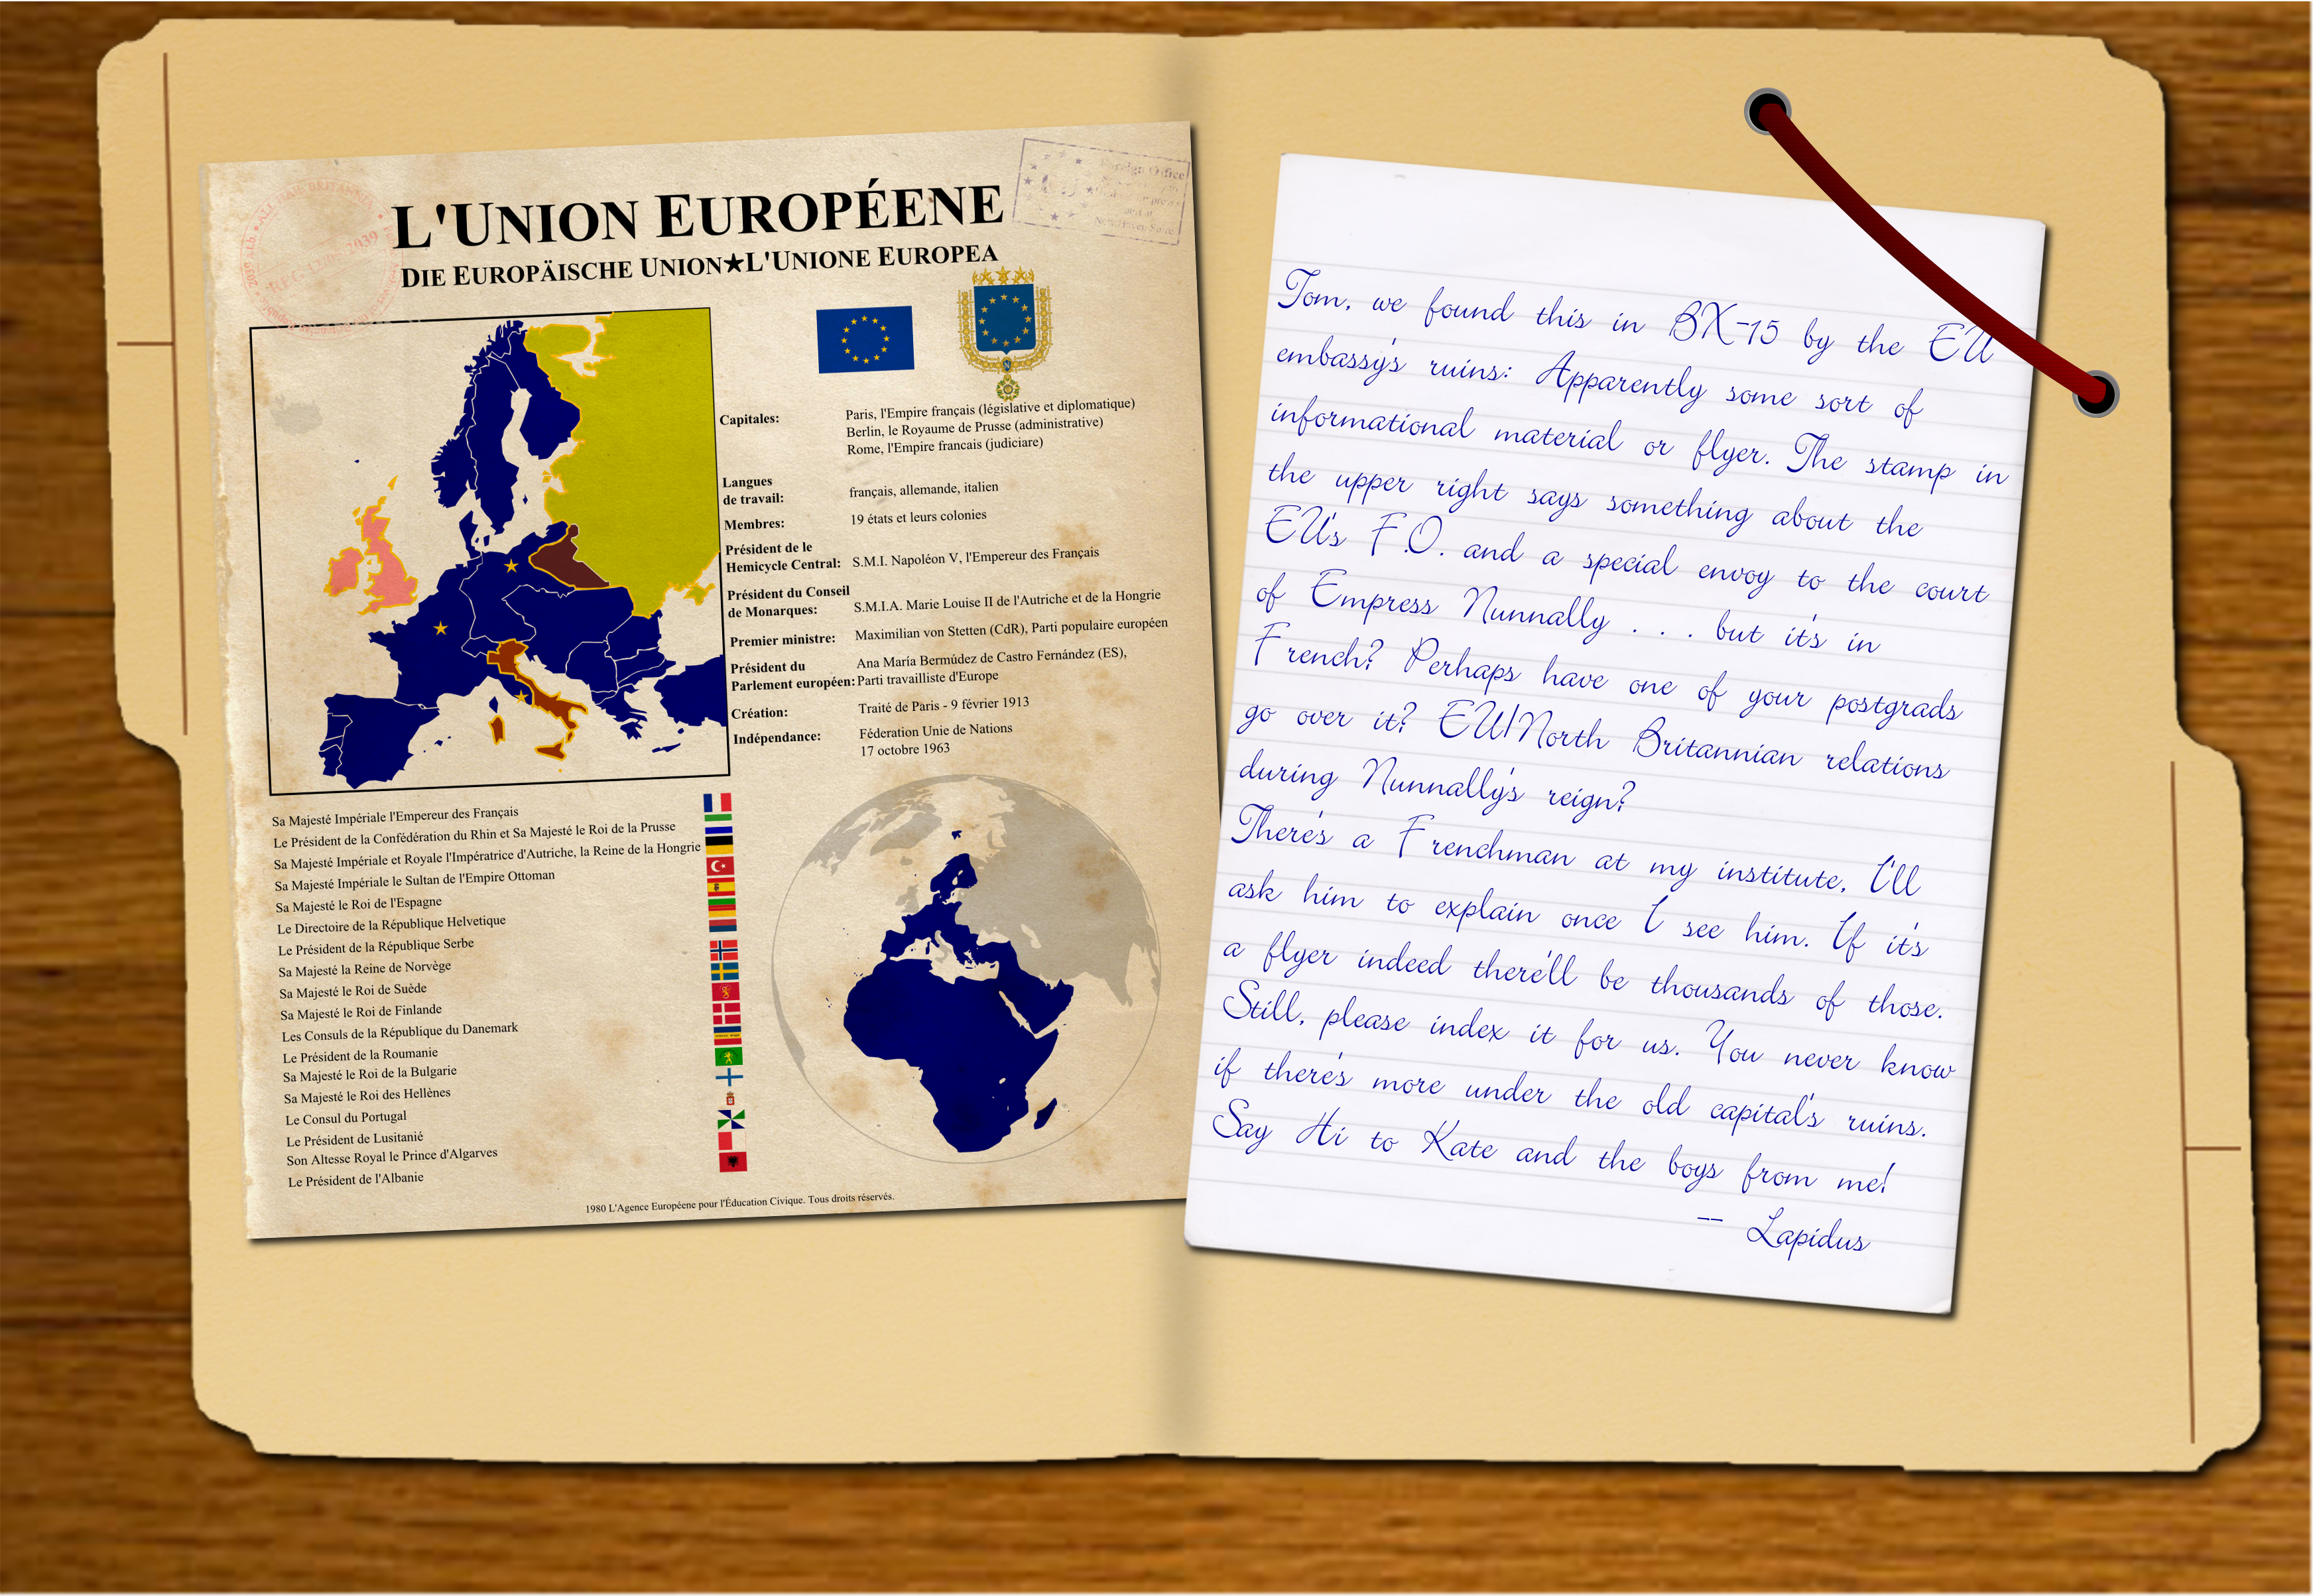 L'UNION EUROPÉENE
DIE EUROPÄISCHE UNION★L'UNIONE EUROPEA
Foreign Office
ALL HAIL BRITANNIA
2039
Capitales:
Paris, l'Empire français (législative et diplomatique)
Berlin, le Royaume de Prusse (administrative)
Rome, l'Empire francais (judiciare)
Langues
de travail:
français, allemande, italien
Membres:
19 états et leurs colonies
Président de le
Hemicycle Central:
S.M.I. Napoléon V, l'Empereur des Français
Président du Conseil
de Monarques:
S.M.I.A. Marie Louise II de l'Autriche et de la Hongrie
Premier ministre:
Maximilian von Stetten (CdR), Parti populaire européen
Président du
Parlement européen:
Ana María Bermúdez de Castro Fernández (ES),
Parti travailliste d'Europe
Création:
Traité de Paris - 9 février 1913
Indépendance:
Féderation Unie de Nations
17 octobre 1963
Sa Majesté Impériale l'Empereur des Français
Le Président de la Confédération du Rhin et Sa Majesté le Roi de la Prusse
Sa Majesté Impériale et Royale l'Impératrice d'Autriche, la Reine de la Hongrie
Sa Majesté Impériale le Sultan de l'Empire Ottoman
Sa Majesté le Roi de l'Espagne
Le Directoire de la République Helvetique
Le Président de la République Serbe
Sa Majesté la Reine de Norvège
Sa Majesté le Roi de Suède
Sa Majesté le Roi de Finlande
Les Consuls de la République du Danemark
Le Président de la Roumanie
Sa Majesté le Roi de la Bulgarie
Sa Majesté le Roi des Hellènes
Le Consul du Portugal
Le Président de Lusitanié
Son Altesse Royal le Prince d'Algarves
Le Président de l'Albanie
1980 L'Agence Européene pour l'Éducation Civique. Tous droits réservés.
Tom, we found this in BX-15 by the EU
embassy's ruins: Apparently some sort of
informational material or flyer. The stamp in
the upper right says something about the
EU's F.O. and a special envoy to the court
of Empress Nunnally . . . but it's in
French? Perhaps have one of your postgrads
go over it? EU/North Britannian relations
during Nunnally's reign?
There's a Frenchman at my institute, I'll
ask him to explain once I see him. If it's
a flyer indeed there'll be thousands of those.
Still, please index it for us. You never know
if there's more under the old capital's ruins.
Say Hi to Kate and the boys from me!
-- Lapidus